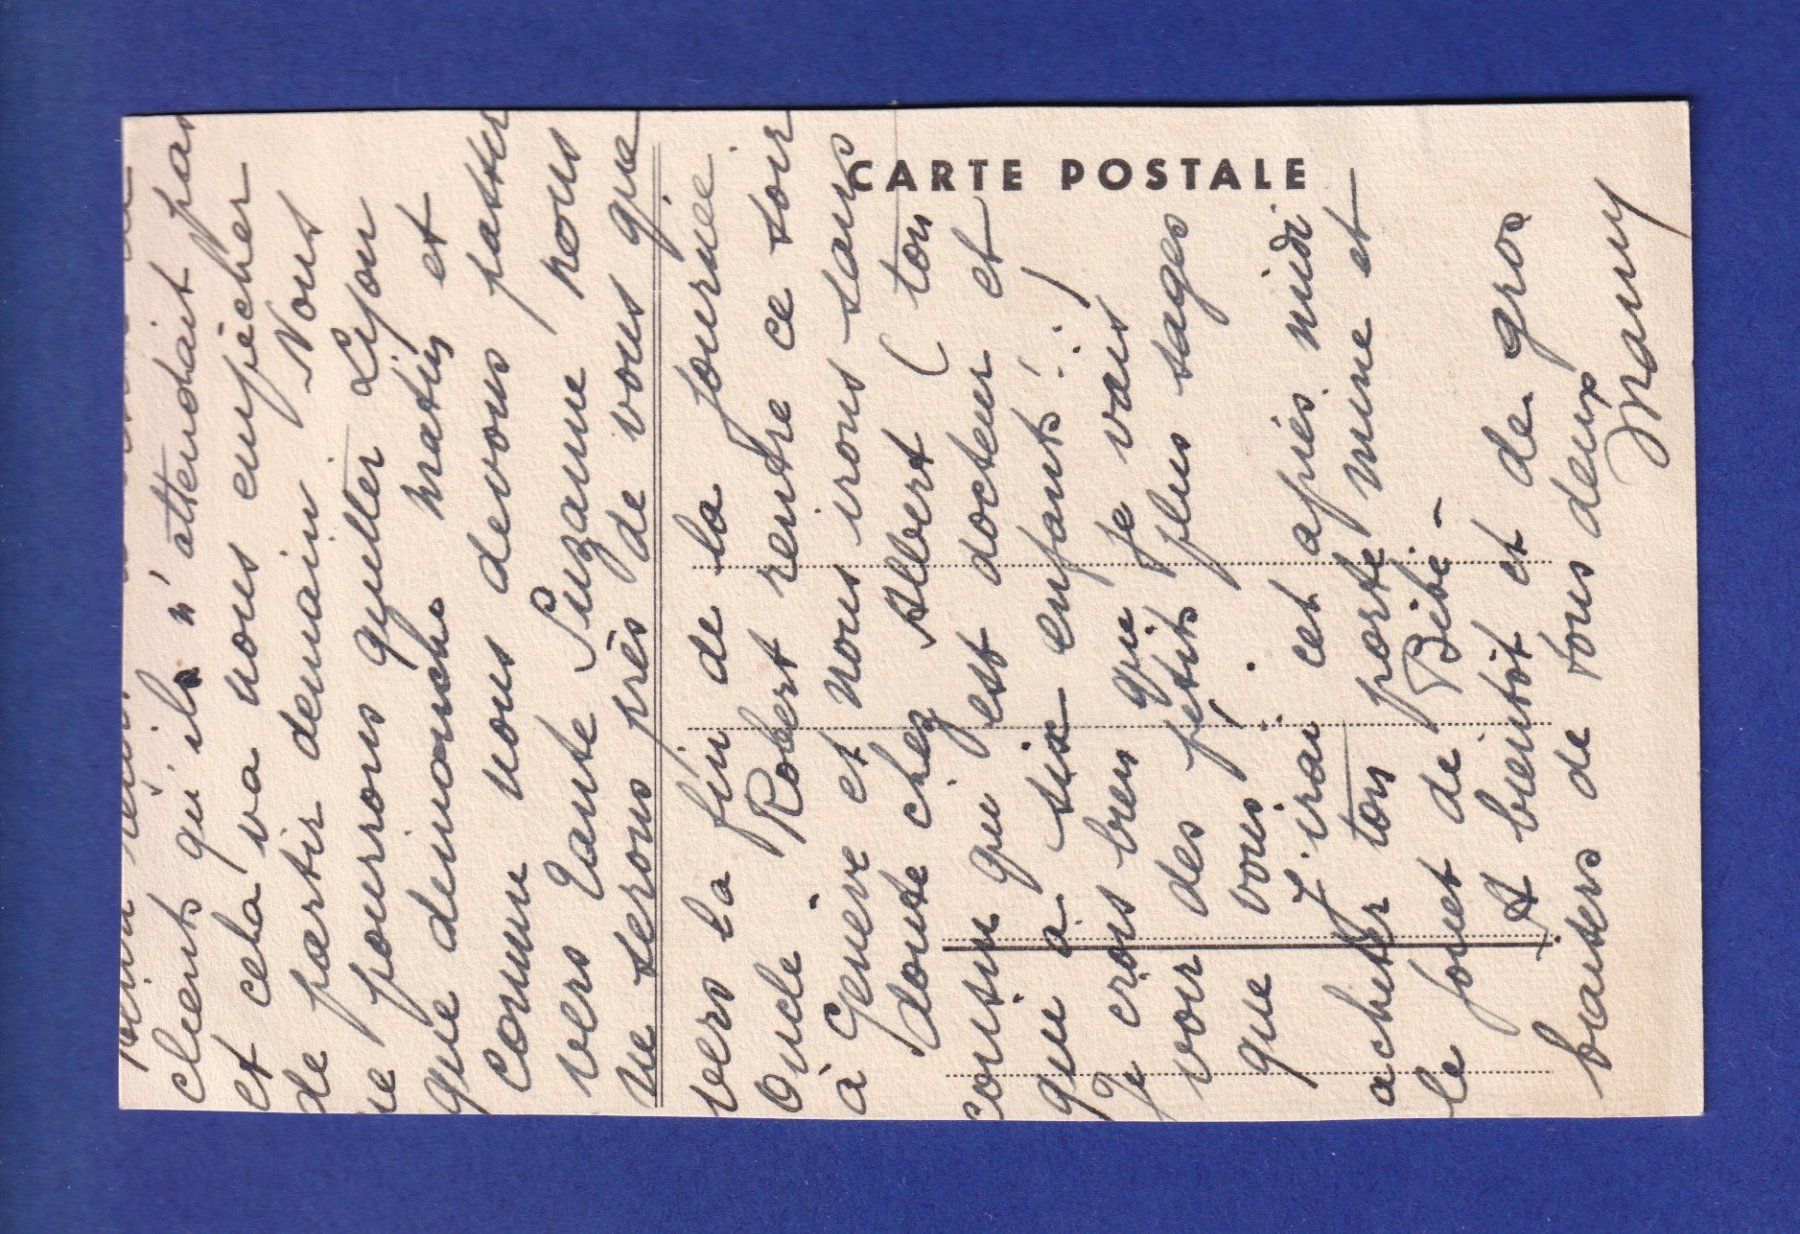 CARTE POSTALE
clients qu'ils n'attendait pas
et cela va nous empêcher
de partir demain. Nous
ne pourrons quitter Lyon
que dimanche matin et
comme nous devons passer
vers Tante Suzanne nous
ne serons près de vous que
vers la fin de la journée.
Oncle Robert rentre ce soir
à Genève et nous irons sans
doute chez Albert (ton
cousin qui est docteur et
qui a six enfants!..)
Je crois bien que je vais
voir des petits plus sages
que vous!.
J'irai cet après midi
acheter ton porte mine et
le fouet de Bébé -
A bientôt et de gros
baisers de vous deux
Many